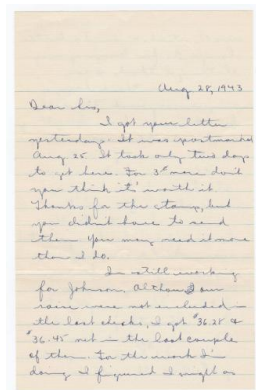 Aug 28, 1943
Dear Sis,
I got your letter
yesterday. It was postmarked
Aug 25. It took only two days
to get here. For 3¢ more don't
you think it' worth it
Thanks for the stamp, but
you didn't have to send
them. You may need it more
than I do.
I'm still working
for Johnson. Although our
raise were not included in
the last checks, I got $36.28 &
$36.45 net in the last couple
of them. For the work I'm
doing I figured I might as